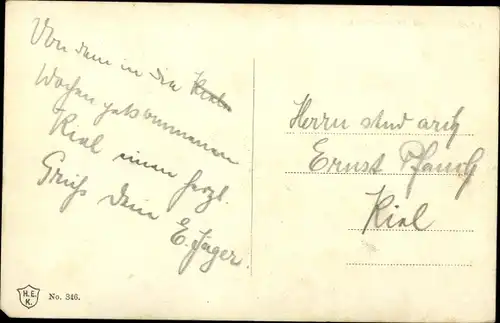 Von dem in die
Wochen gekommenen
Kiel einen herzl.
Gruß Dein
E. Jäger.
Herrn stud arch
Ernst Pfauch
Kiel
H.E.
K.
No. 346.